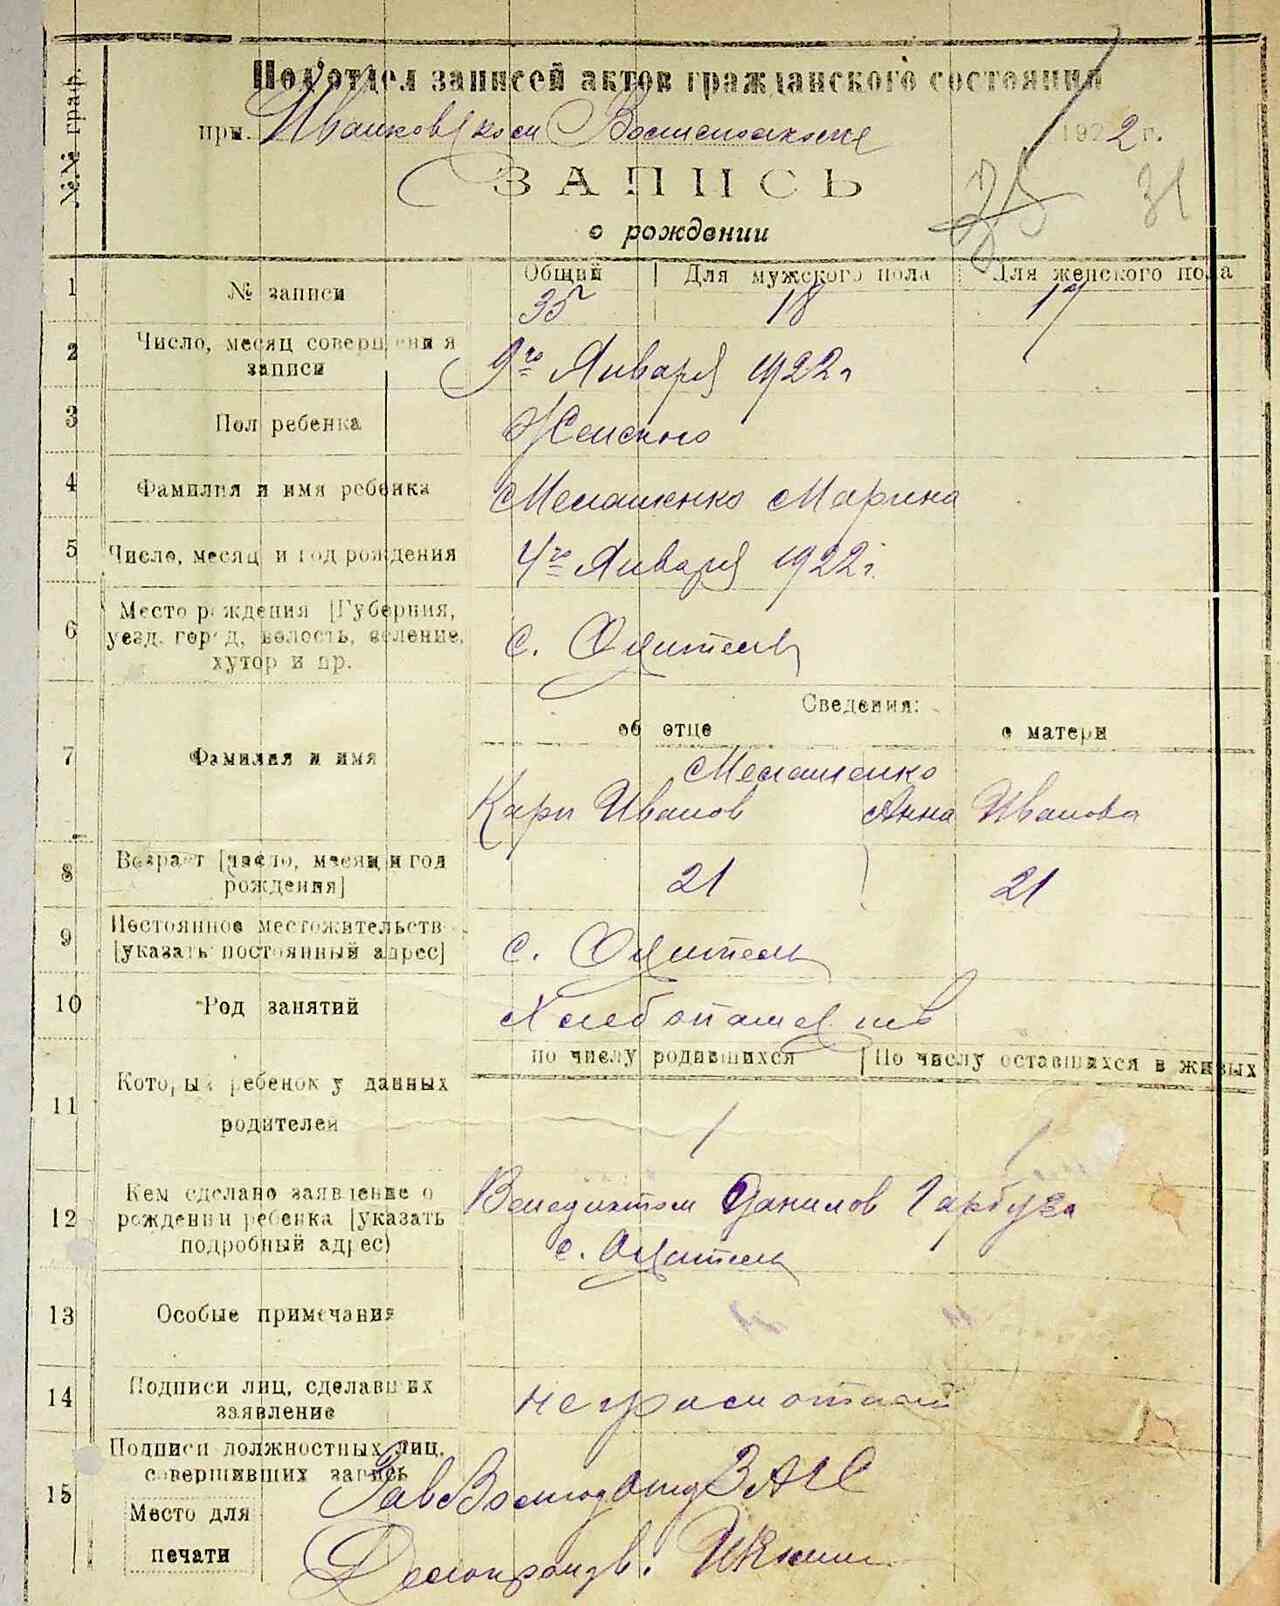 №№ граф.
Подотдел записей актов гражданского состояния
при Иванковском Волисполкоме 1922 г.
ЗАПИСЬ 31
о рождении
Общий | Для мужского пола | Для женского пола
1 № записи 35 18 17
2 Число, месяц совершения 9го Января 1922 г
записи
3 Пол ребенка Женского
4 Фамилия и имя ребенка Мелашенко Марина
5 Число, месяц и год рождения 4го Января 1922 г.
6 Место рождения [Губерния,
уезд, город, волость, селение, с.
хутор и пр.
Сведения:
об отце о матери
7 Фамилия и имя Мелашенко
Карп Иванов Анна Иванова
8 Возраст [число, месяц и год 21 21
рождения]
9 Постоянное местожительств
[указать постоянный адрес] с.
10 Род занятий Хлебопашец
по числу родившихся | По числу оставшихся в живых
11 Который ребенок у данных
родителей 1 1
12 Кем сделано заявление о Венедиктом Данилов Гарбуза
рождении ребенка [указать
подробный адрес) с.
13 Особые примечания
14 Подписи лиц, сделавших неграмотный
заявление
15 Подписи должностных лиц,
совершивших запись ЗавВолподотдЗАГС
Место для
печати Делопроизв.